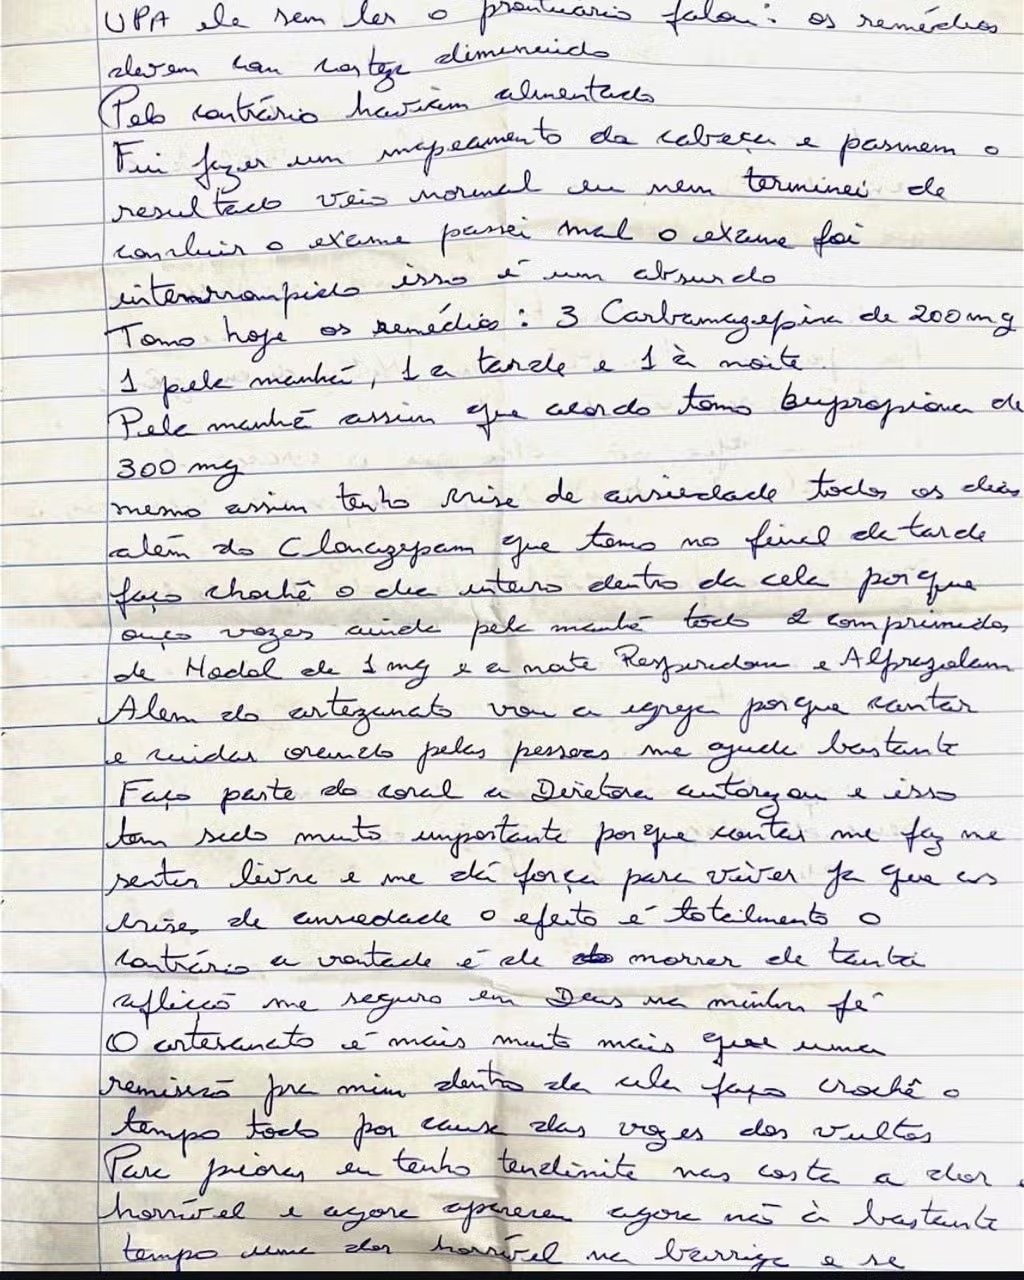 UPA ele sem ler o prontuário falou: os remédios
devem com certeza diminuindo
Pelo contrário haviam almentado
Fui fazer um mapeamento da cabeça e pasmem o
resultado veio normal eu nem terminei de
concluir o exame passei mal o exame foi
interrompido isso é um absurdo
Tomo hoje os remédios: 3 Carbamazepina de 200mg
1 pela manhã, 1 a tarde e 1 à noite.
Pela manhã assim que acordo tomo bupropiona de
300 mg
mesmo assim tenho crise de ansiedade todos os dias
além do Clonazepam que tomo no final da tarde
faço chochê o dia inteiro dentro da cela porque
ouço vozes ainda pela manhã todo 2 comprimidos
de Hadol de 1 mg e a noite Resperedona e Alprazolam
Alem do artezanato vou a igreja porque cantar
e cuidar orando pelas pessoas me ajuda bastante
Faço parte do coral a Diretora autorizou e isso
tem sido muito importante porque cantar me faz me
sentir livre e me dá força para viver ja que as
crises de ansiedade o efeito é totalmente o
contrário a vontade é de morrer de tanta
aflicção me seguro em Deus na minha fé
O artesanato é mais muito mais que uma
remissão pra mim dentro da cela faço crochê o
tempo todo por causa das vozes dos vultos
Para piorar eu tenho tendinite nas costa a dor
horrível e agora apareceu agora não à bastante
tempo uma dor horrível na barriga e se